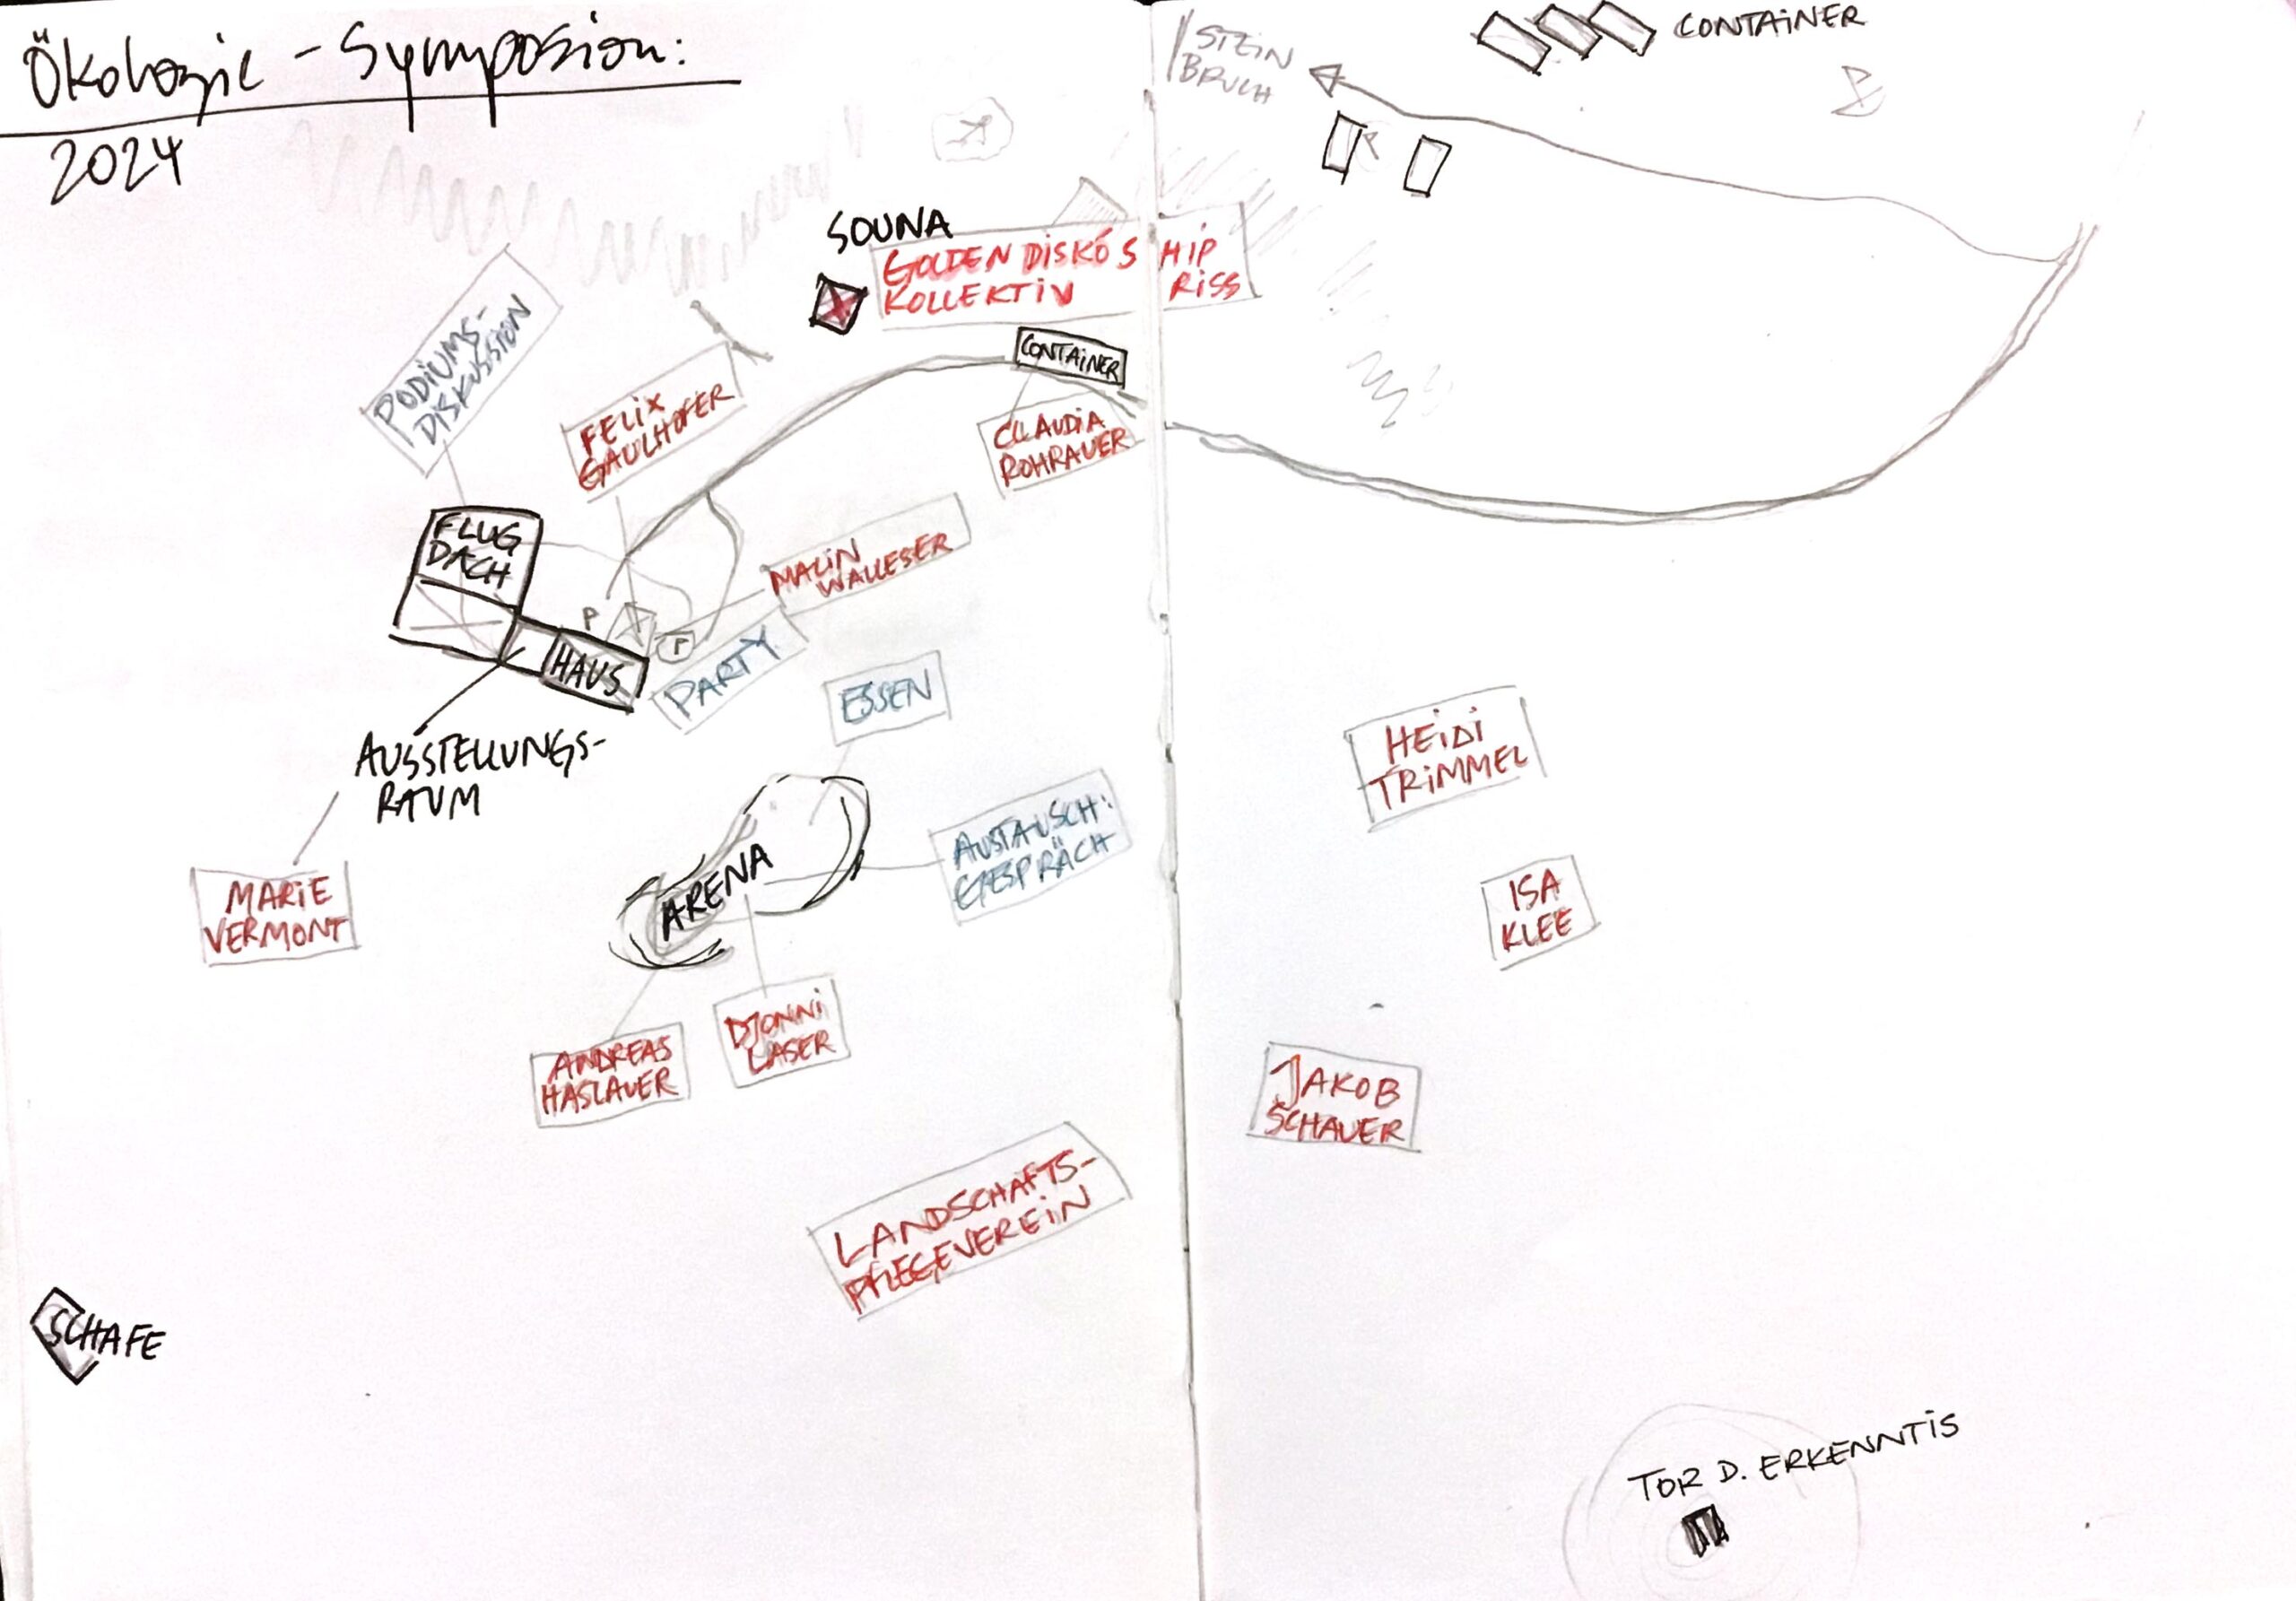 Ökologie - Symposion:
2024
STEIN
BRUCH
CONTAINER
SOUNA
GOLDEN DISKÓ SHIP
KOLLEKTIV RISS
PODIUMS-
DISKUSSION
FELIX
GAULHOFER
CONTAINER
CLAUDIA
ROHRAUER
FLUG
DACH
MALIN
WALLESER
P
P
HAUS
PARTY
ESSEN
AUSSTELLUNGS-
RAUM
HEIDI
TRIMMEL
MARIE
VERMONT
ARENA
AUSTAUSCH:
GESPRÄCH
ISA
KLEE
ANDREAS
HASLAUER
DJONNI
LASER
JAKOB
SCHAUER
LANDSCHAFTS-
PFLEGEVEREIN
SCHAFE
TOR D. ERKENNTIS